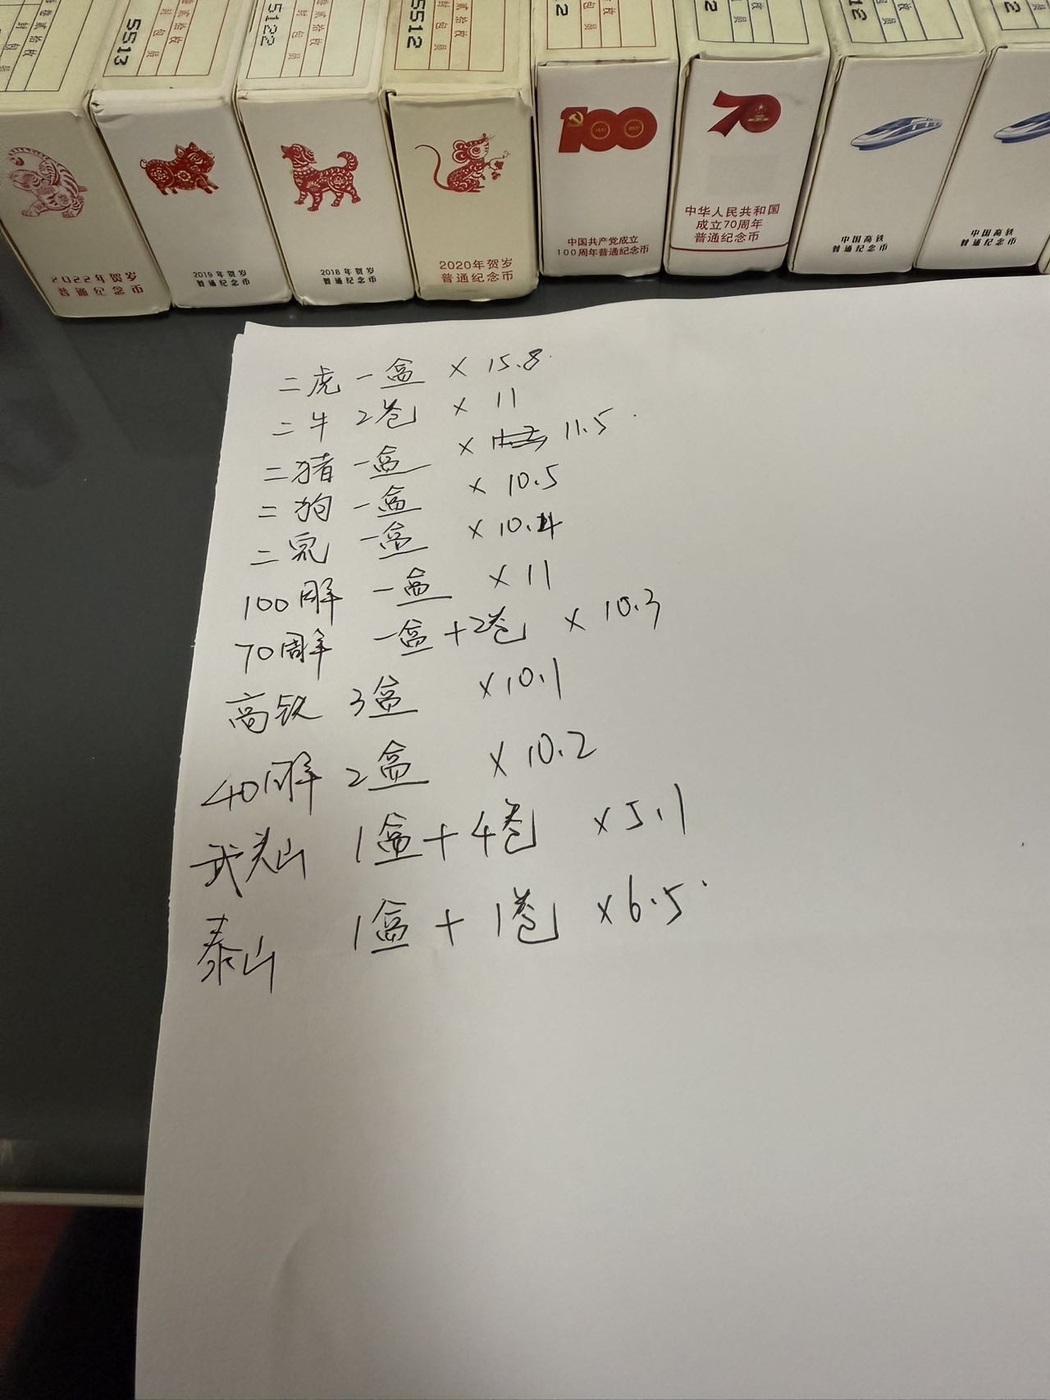 5513
5122
5512
封包员
2022年贺岁
普通纪念币
2019年贺岁
普通纪念币
2018年贺岁
普通纪念币
2020年贺岁
普通纪念币
100
中国共产党成立
100周年普通纪念币
70
中华人民共和国
成立70周年
普通纪念币
中国高铁
普通纪念币
中国高铁
普通纪念币
二虎 一盒 × 15.8
二牛 2卷 × 11
二猪 一盒 × 11.5
二狗 一盒 × 10.5
二兔 一盒 × 10.4
100周年 一盒 × 11
70周年 一盒+2卷 × 10.3
高铁 3盒 ×10.1
40周年 2盒 × 10.2
武夷山 1盒+4卷 ×5.1
泰山 1盒 + 1卷 ×6.5